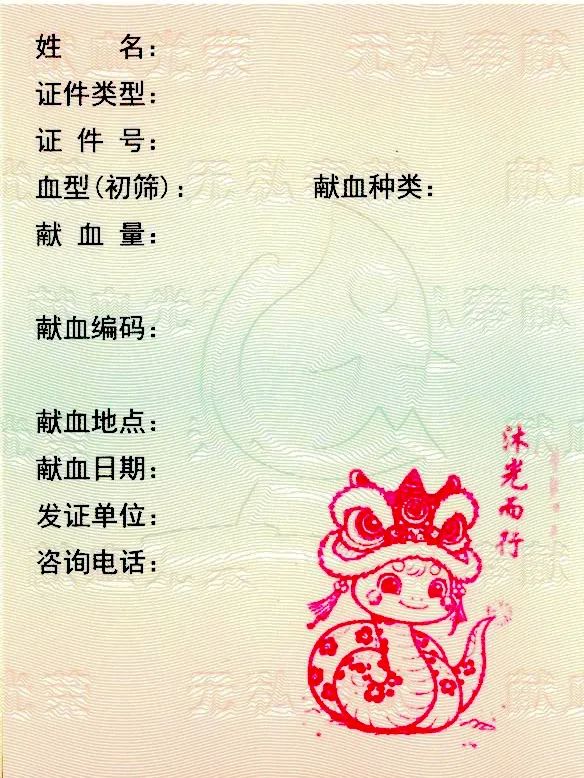 姓 名：
证件类型：
证 件 号：
血型(初筛)： 献血种类：
献 血 量：
献血编码：
献血地点：
献血日期：
发证单位：
咨询电话：
沐光而行